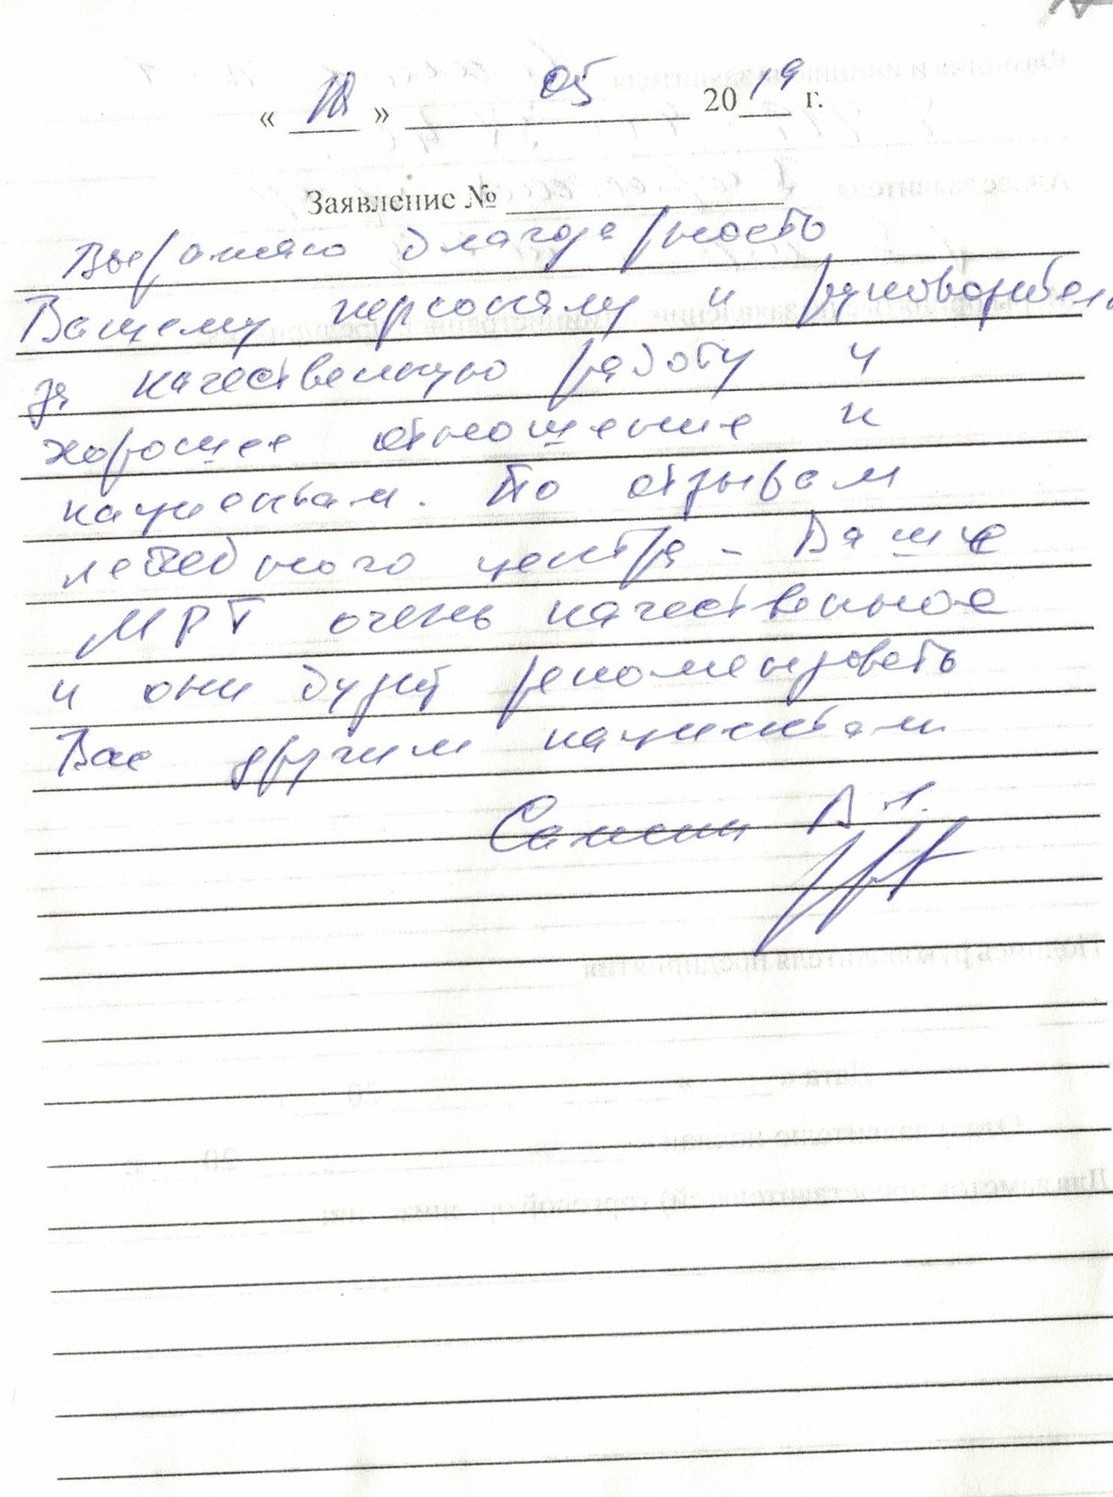 « 18 » 05 2019 г.
Заявление №
Выражаю благодарность
Вашему персоналу и руководству
за качественную работу и
хорошее отношение к
пациентам. По отзывам
лечебного центра - Ваше
МРТ очень качественное
и они будут рекомендовать
Вас другим пациентам